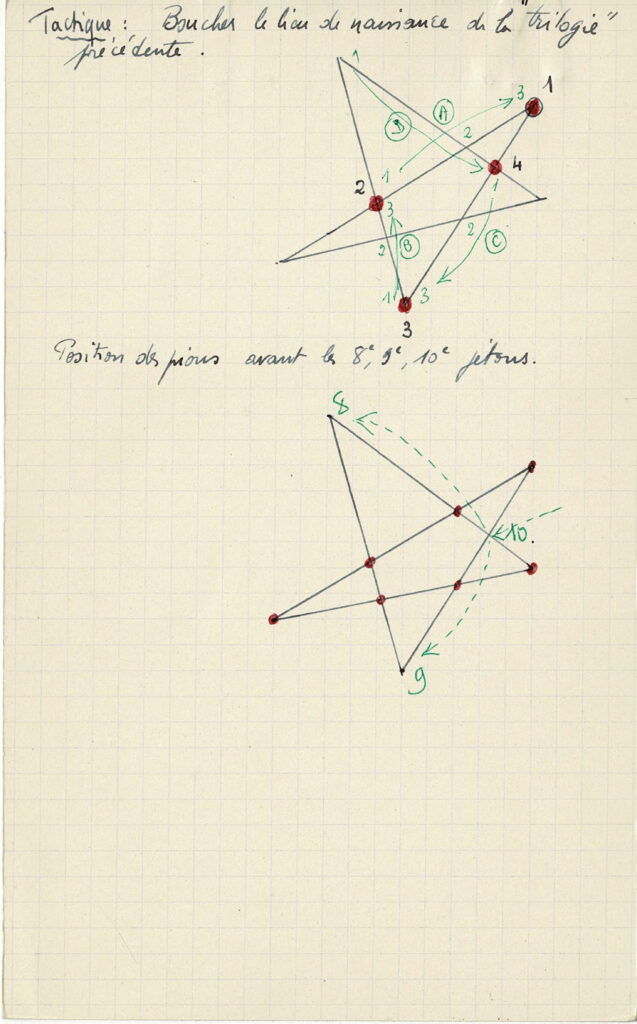 Tactique : Boucher le lieu de naissance de la "trilogie"
précédente .
1
3
1
A
D
2
4
1
2
1
3
2
C
2
B
1
3
3
Position des pions avant les 8e, 9e, 10e jetons.
8
10.
9